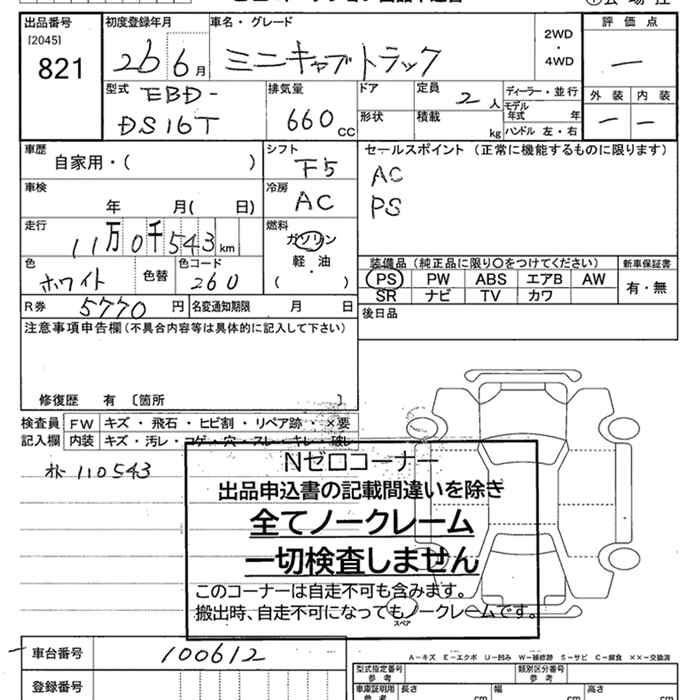 出品番号 初度登録年月 車名・グレード 評価点
[2045]
821
26 6月 ミニキャブトラック 2WD・4WD —
型式 排気量 ドア 定員 2人 ディーラー・並行 外装 内装
EBD-
DS16T
660CC
形状 積載 kg モデル年式 年 — —
ハンドル 左・右
車歴 シフト セールスポイント (正常に機能するものに限ります)
自家用・( ) F5 AC
車検 冷房 PS
年 月( 日) AC
走行 燃料
11万0千543km ガソリン
軽・油
( )
色 色替 色コード
ホワイト 260
装備品 (純正品に限り○をつけてください) 新車保証書
PS PW ABS エアB AW 有・無
SR ナビ TV カワ
R券 5770円 名変通知期限 月 日
後日品
注意事項申告欄(不具合内容等は具体的に記入して下さい)
修復歴 有 〔箇所 〕
検査員 FW キズ・飛石・ヒビ割・リペア跡・×要
記入欄 内装 キズ・汚レ・コゲ・穴・スレ・キレ・破レ
オ 110543
Nゼロコーナー
出品申込書の記載間違いを除き
全てノークレーム
一切検査しません
このコーナーは自走不可も含みます。
搬出時、自走不可になってもノークレームです。
スペア
車台番号 100612
A-キズ E-エクボ U-凹み W-補修跡 S-サビ C-腐食 ××-交換済
登録番号
型式指定番号 参考 類別区分番号 参考
車庫証明用 参考 長さ cm 幅 cm 高さ cm